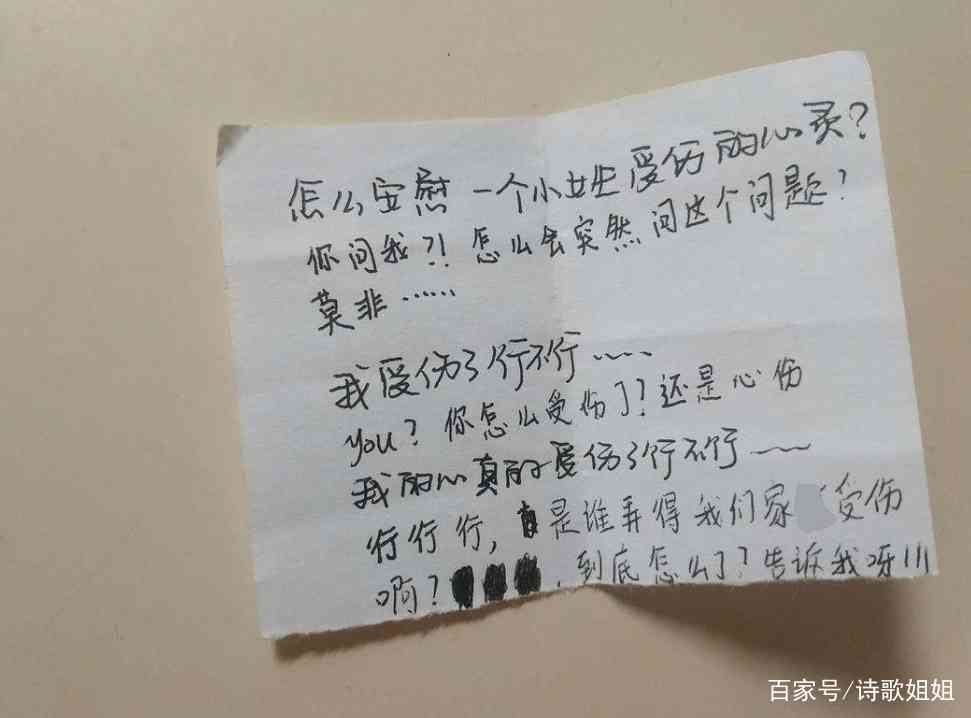 怎么安慰一个小女生受伤的心灵？
你问我?! 怎么会突然问这个问题？
莫非……
我受伤了行不行~~~
you？你怎么受伤了？还是心伤
我的心真的受伤了行不行~~~
行行行，是谁弄得我们家受伤
啊？，到底怎么了？告诉我呀!!!
百家号/诗歌姐姐